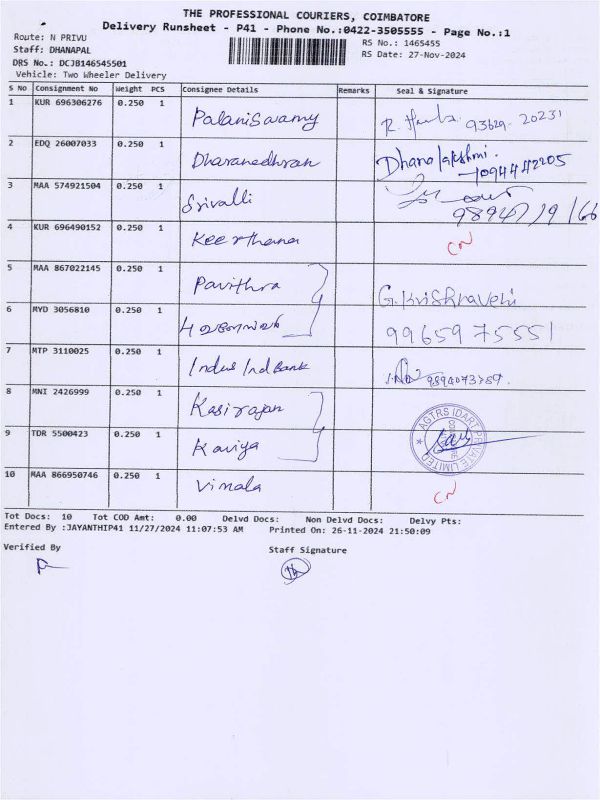 THE PROFESSIONAL COURIERS, COIMBATORE
Delivery Runsheet - P41 - Phone No.:0422-3505555 - Page No.:1
Route: N PRIVU
RS No.: 1465455
Staff: DHANAPAL
RS Date: 27-Nov-2024
DRS No.: DCJB146545501
Vehicle: Two Wheeler Delivery
S No Consignment No Weight PCS Consignee Details Remarks Seal & Signature
1 KUR 696306276 0.250 1 Palaniswamy 93629-20231
2 EDQ 26007033 0.250 1 Dharanedhran Dhanalakshmi.
3 MAA 574921504 0.250 1 Srivalli
4 KUR 696490152 0.250 1 Keerthana CN
5 MAA 867022145 0.250 1 Pavithra G. Krishnaveni
6 MYD 3056810 0.250 1 99659 75551
7 MTP 3110025 0.250 1 IndusInd Bank
8 MNI 2426999 0.250 1 Kasirajan
9 TDR 5500423 0.250 1 Kaviya PRIVATE LIMITED
10 MAA 866950746 0.250 1 Vimala CN
Tot Docs: 10 Tot COD Amt: 0.00 Delvd Docs: Non Delvd Docs: Delvy Pts:
Entered By :JAYANTHIP41 11/27/2024 11:07:53 AM Printed On: 26-11-2024 21:50:09
Verified By
Staff Signature